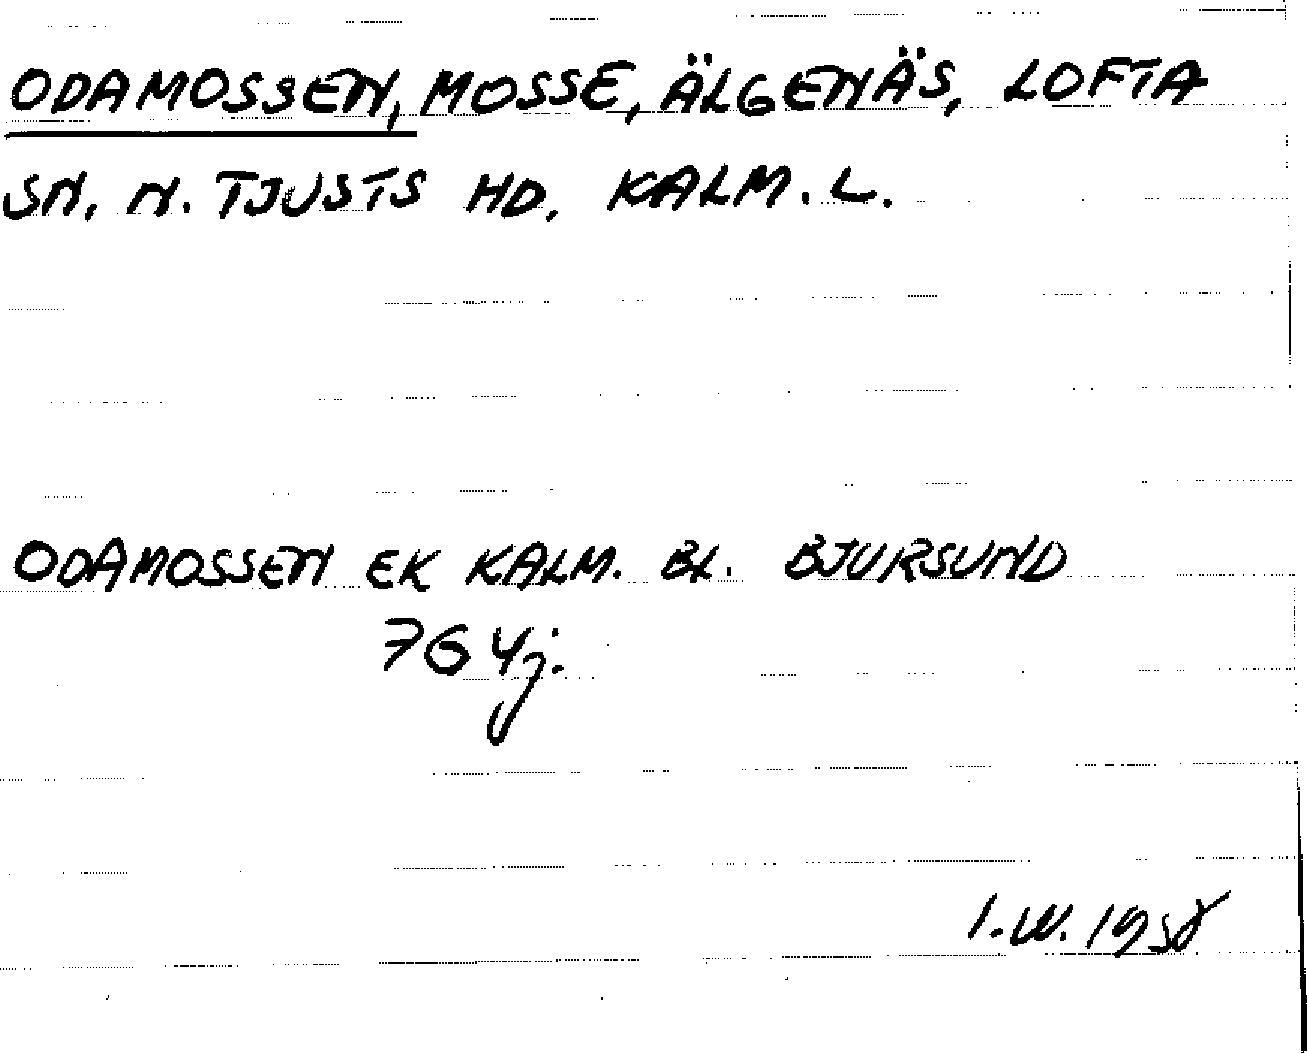 ODAMOSSEN, MOSSE, ÄLGENÄS, LOFTA
SN. N. TJUSTS HD. KALM. L.
ODAMOSSEN EK KALM. BL. BJURSUND
764j.
I.W. 1958